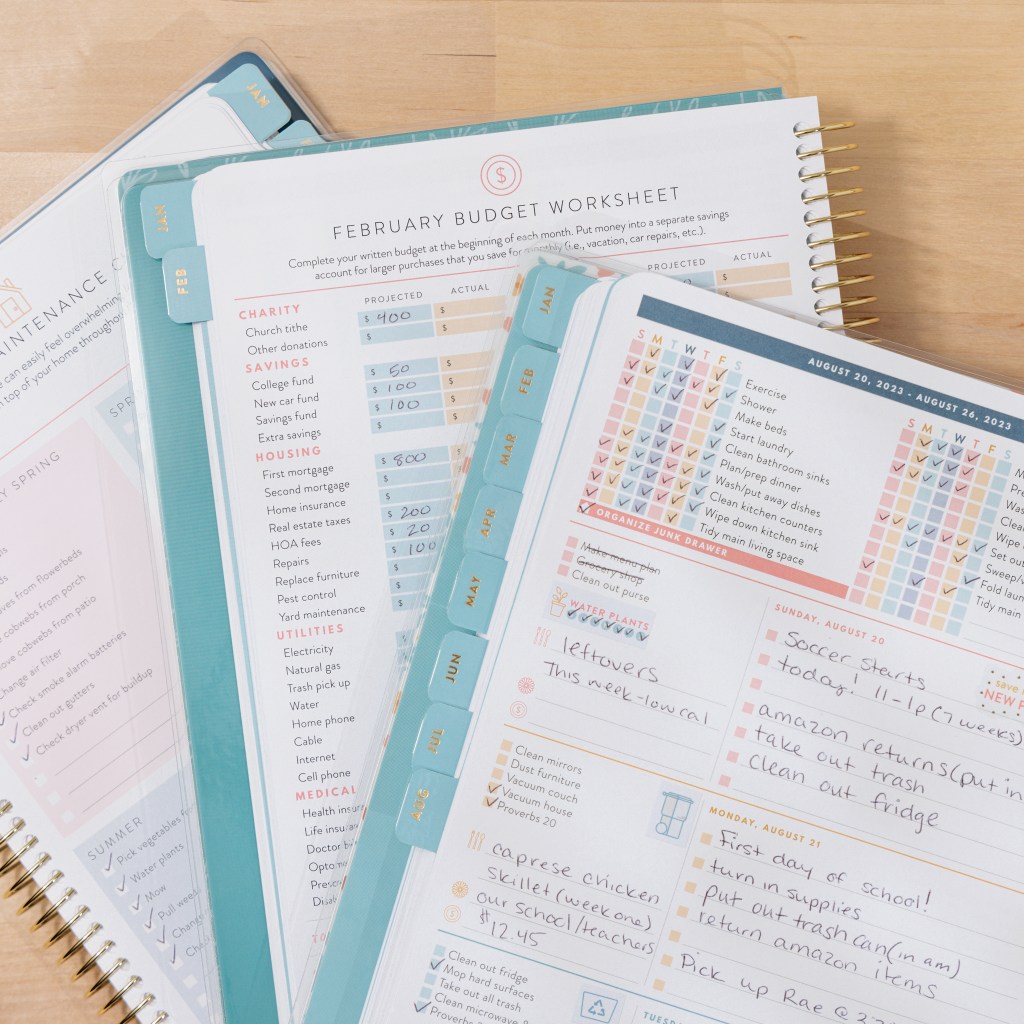 JAN
MAINTENANCE
can easily feel overwhelming
top of your home throughout
SPR
SPRING
aves from flowerbeds
cobwebs from porch
cobwebs from patio
Change air filter
Check smoke alarm batteries
Clean out gutters
Check dryer vent for buildup
SUMMER
Pick vegetables
Water plants
Mow
Pull weed
JAN
FEB
$
FEBRUARY BUDGET WORKSHEET
Complete your written budget at the beginning of each month. Put money into a separate savings
account for larger purchases that you save for monthly (i.e., vacation, car repairs, etc.).
PROJECTED ACTUAL
PROJECTED ACTUAL
CHARITY
Church tithe $ 400 $
Other donations $ $
SAVINGS
College fund $ 50 $
New car fund $ 100 $
Savings fund $ 100 $
Extra savings $ $
HOUSING
First mortgage $ 800
Second mortgage $
Home insurance $
Real estate taxes $ 200
HOA fees $ 20
Repairs $ 100
Replace furniture $
Pest control $
Yard maintenance $
UTILITIES
Electricity
Natural gas
Trash pick up
Water
Home phone
Cable
Internet
Cell phone
MEDICAL
Health insur
Life insura
Doctor
JAN
FEB
MAR
APR
MAY
JUN
JUL
AUG
AUGUST 20, 2023 - AUGUST 26, 2023
S M T W T F S
Exercise
Shower
Make beds
Start laundry
Clean bathroom sinks
Plan/prep dinner
Wash/put away dishes
Clean kitchen counters
Wipe down kitchen sink
Tidy main living space
S M T W T F S
Wipe do
Set out
Sweep/v
Fold laun
Tidy main
ORGANIZE JUNK DRAWER
Make menu plan
Grocery shop
Clean out purse
WATER PLANTS
leftovers
This week-low cal
SUNDAY, AUGUST 20
Soccer starts
today! 11-1p (7 weeks)
amazon returns (put in
take out trash
clean out fridge
save
NEW P
Clean mirrors
Dust furniture
Vacuum couch
Vacuum house
Proverbs 20
caprese chicken
skillet (week one)
our school/teachers
$12.45
MONDAY, AUGUST 21
First day of school!
turn in supplies
put out trash can (in am)
return amazon items
Pick up Rae @
Clean out fridge
Mop hard surfaces
Take out all trash
Clean microwave
Proverbs
TUESD